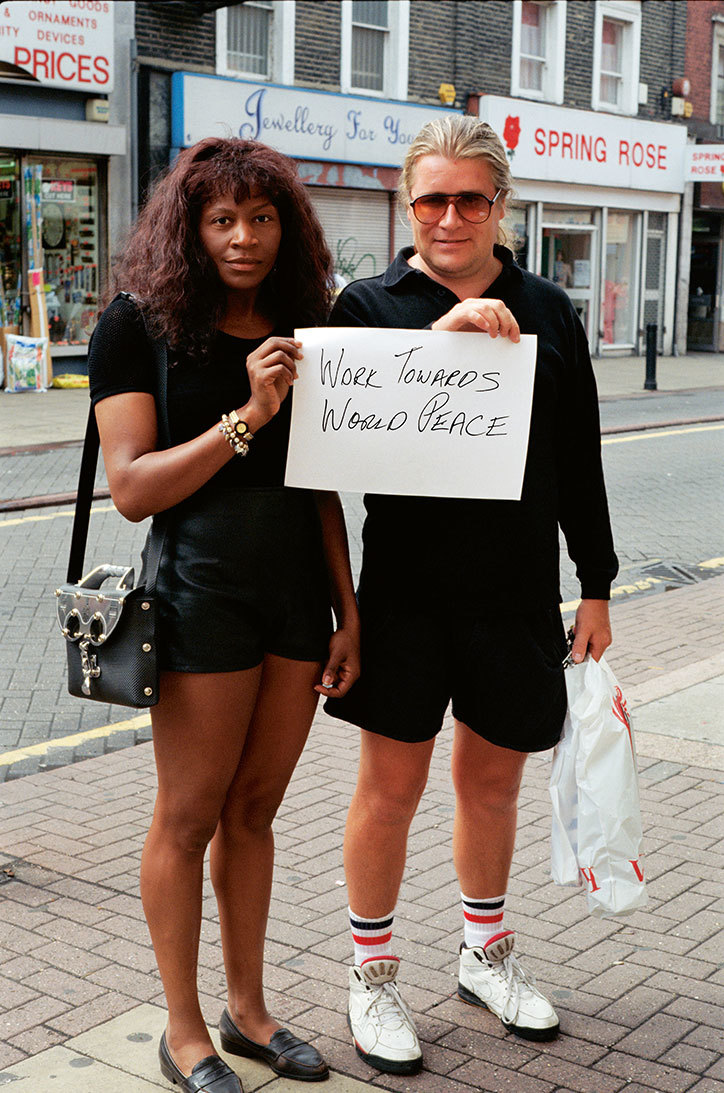 & ORNAMENTS
PRICES
Jewellery For You
SPRING ROSE
SPRING
ROSE
WORK TOWARDS
WORLD PEACE